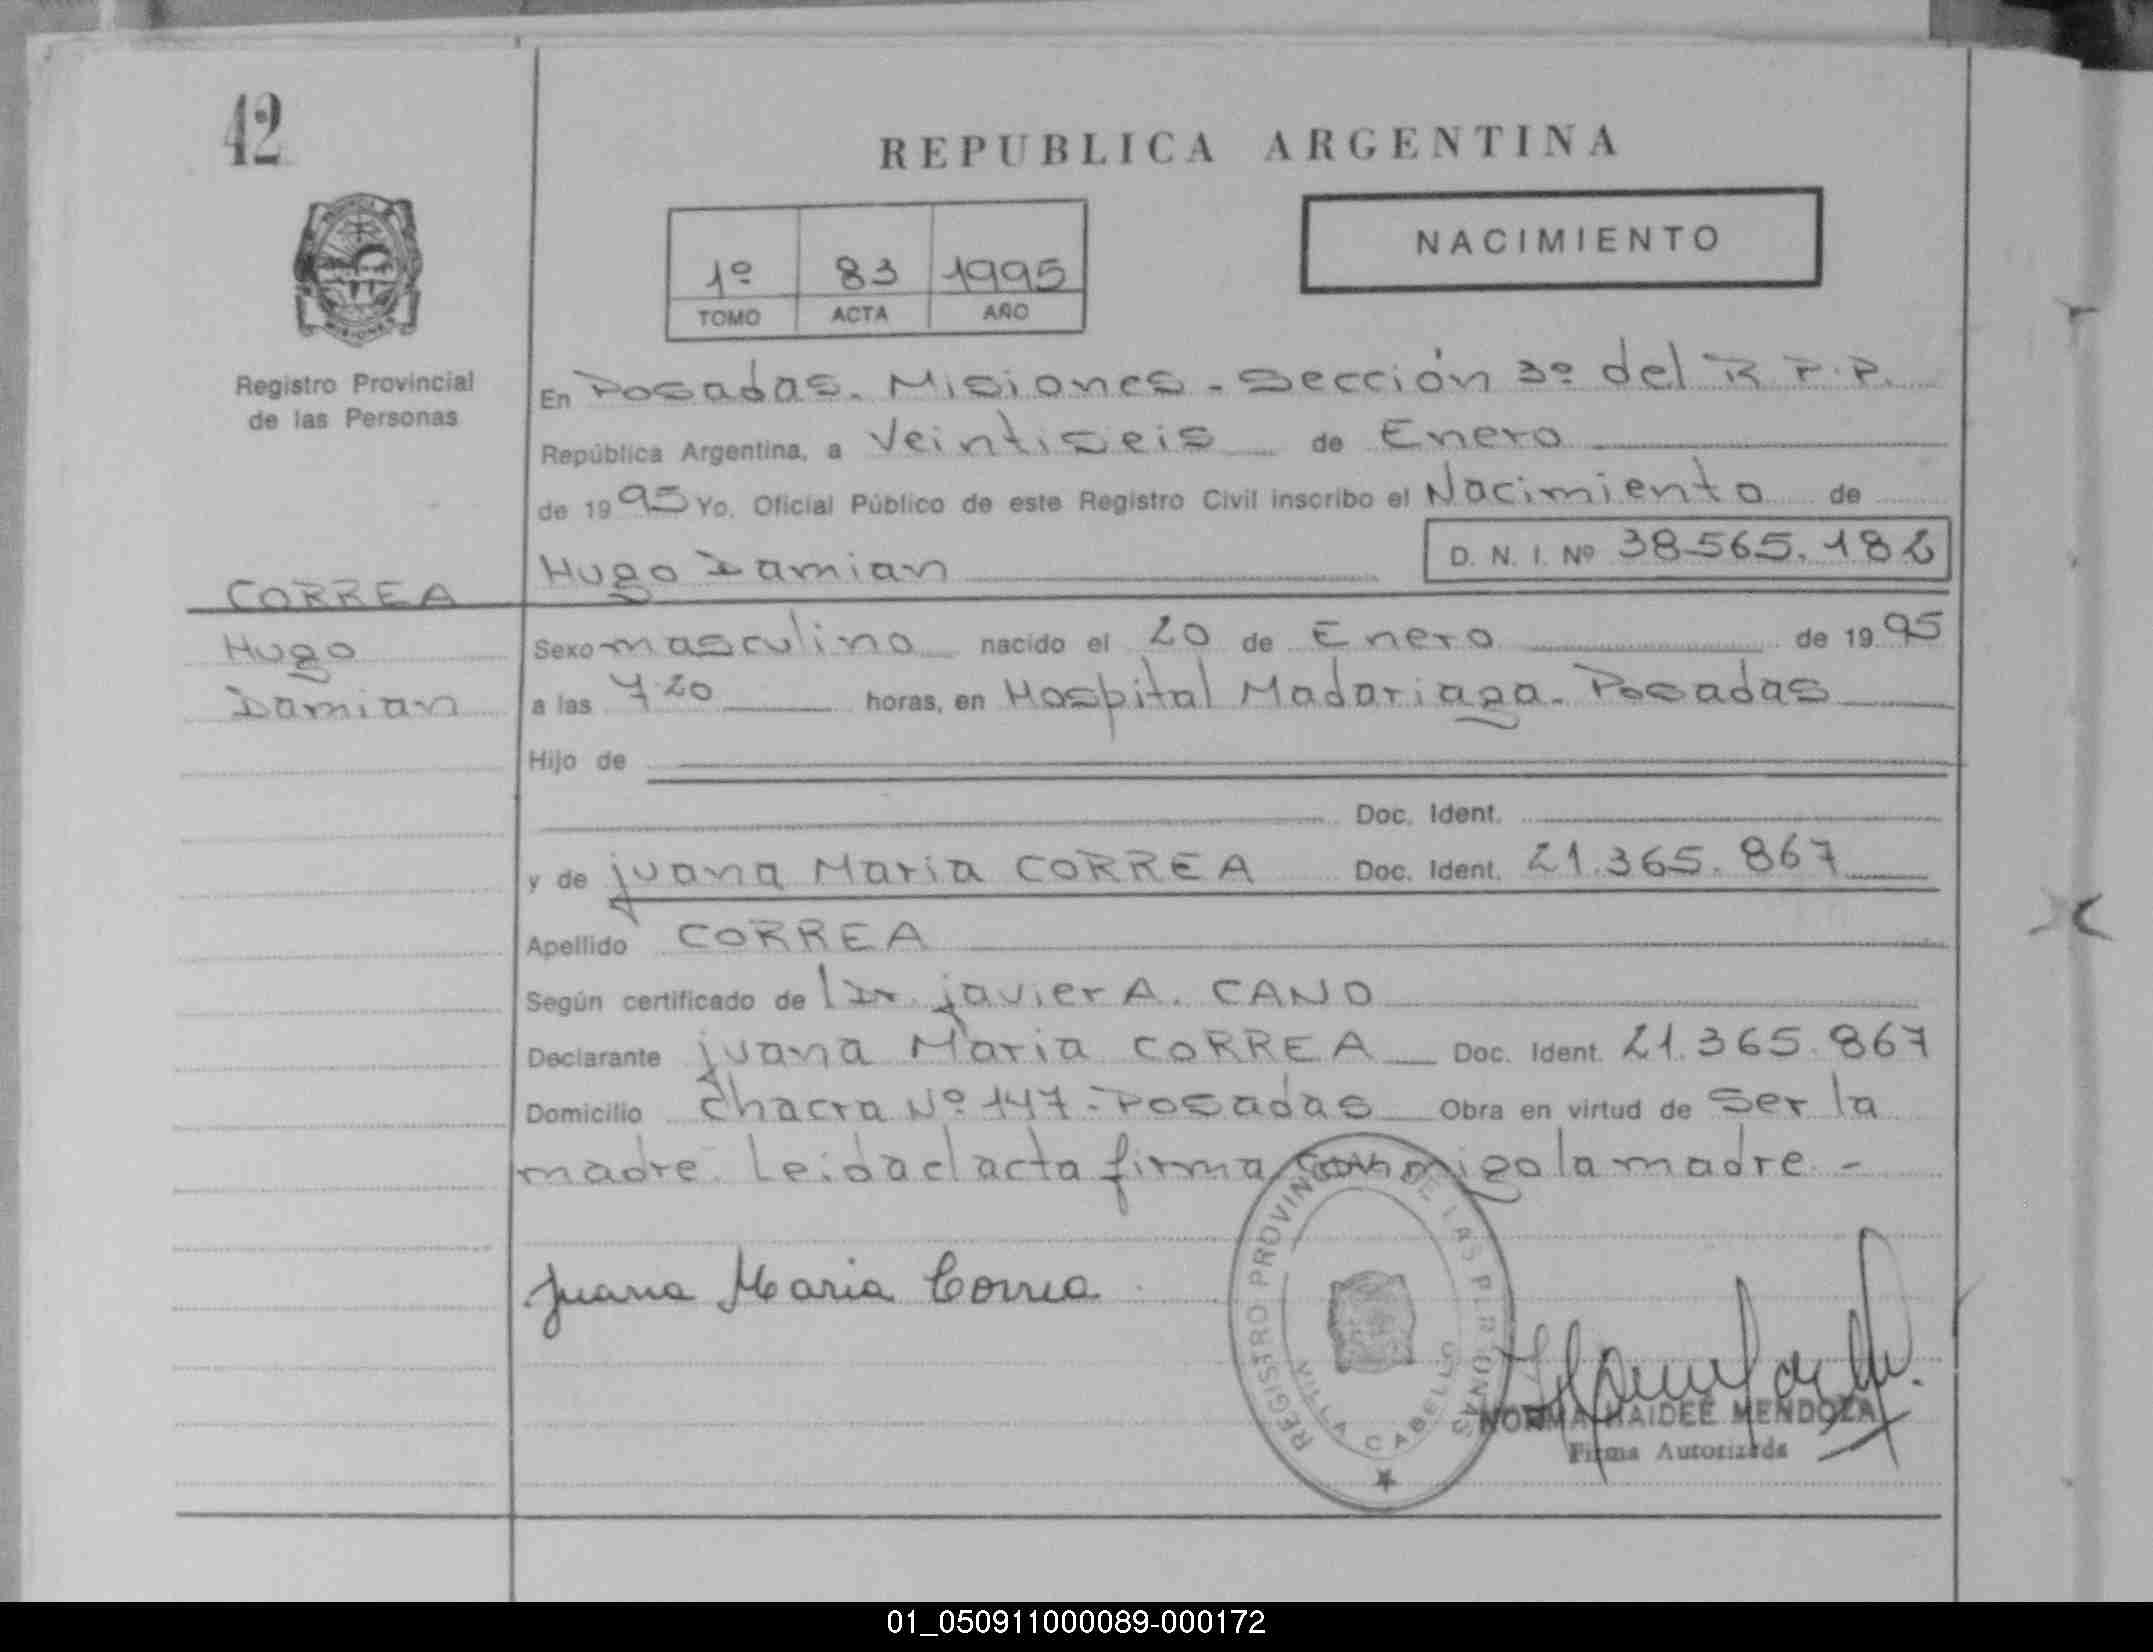 42
REPUBLICA ARGENTINA
1º 83 1995
TOMO ACTA AÑO
NACIMIENTO
Registro Provincial
de las Personas
En Posadas. Misiones - Sección 3º del R.P.P.
República Argentina, a Veintiseis de Enero
de 1995 Yo, Oficial Público de este Registro Civil inscribo el Nacimiento de
Hugo Damian D. N. I. Nº 38.565.182
CORREA
Hugo
Damian
Sexo masculino nacido el 20 de Enero de 1995
a las 7.20 horas, en Hospital Madariaga - Posadas
Hijo de
Doc. Ident.
y de juana Maria CORREA Doc. Ident. 21.365.867
Apellido CORREA
Según certificado de Dr. javier A. CANO
Declarante juana Maria CORREA Doc. Ident. 21.365.867
Domicilio chacra Nº 147 - Posadas Obra en virtud de ser la
madre. Leida el acta firma conmigo la madre. -
Juana Maria Correa
REGISTRO PROVINCIAL DE LAS PERSONAS
VILLA CABELLO
NORMA HAIDEE MENDOZA
Firma Autorizada
01_050911000089-000172